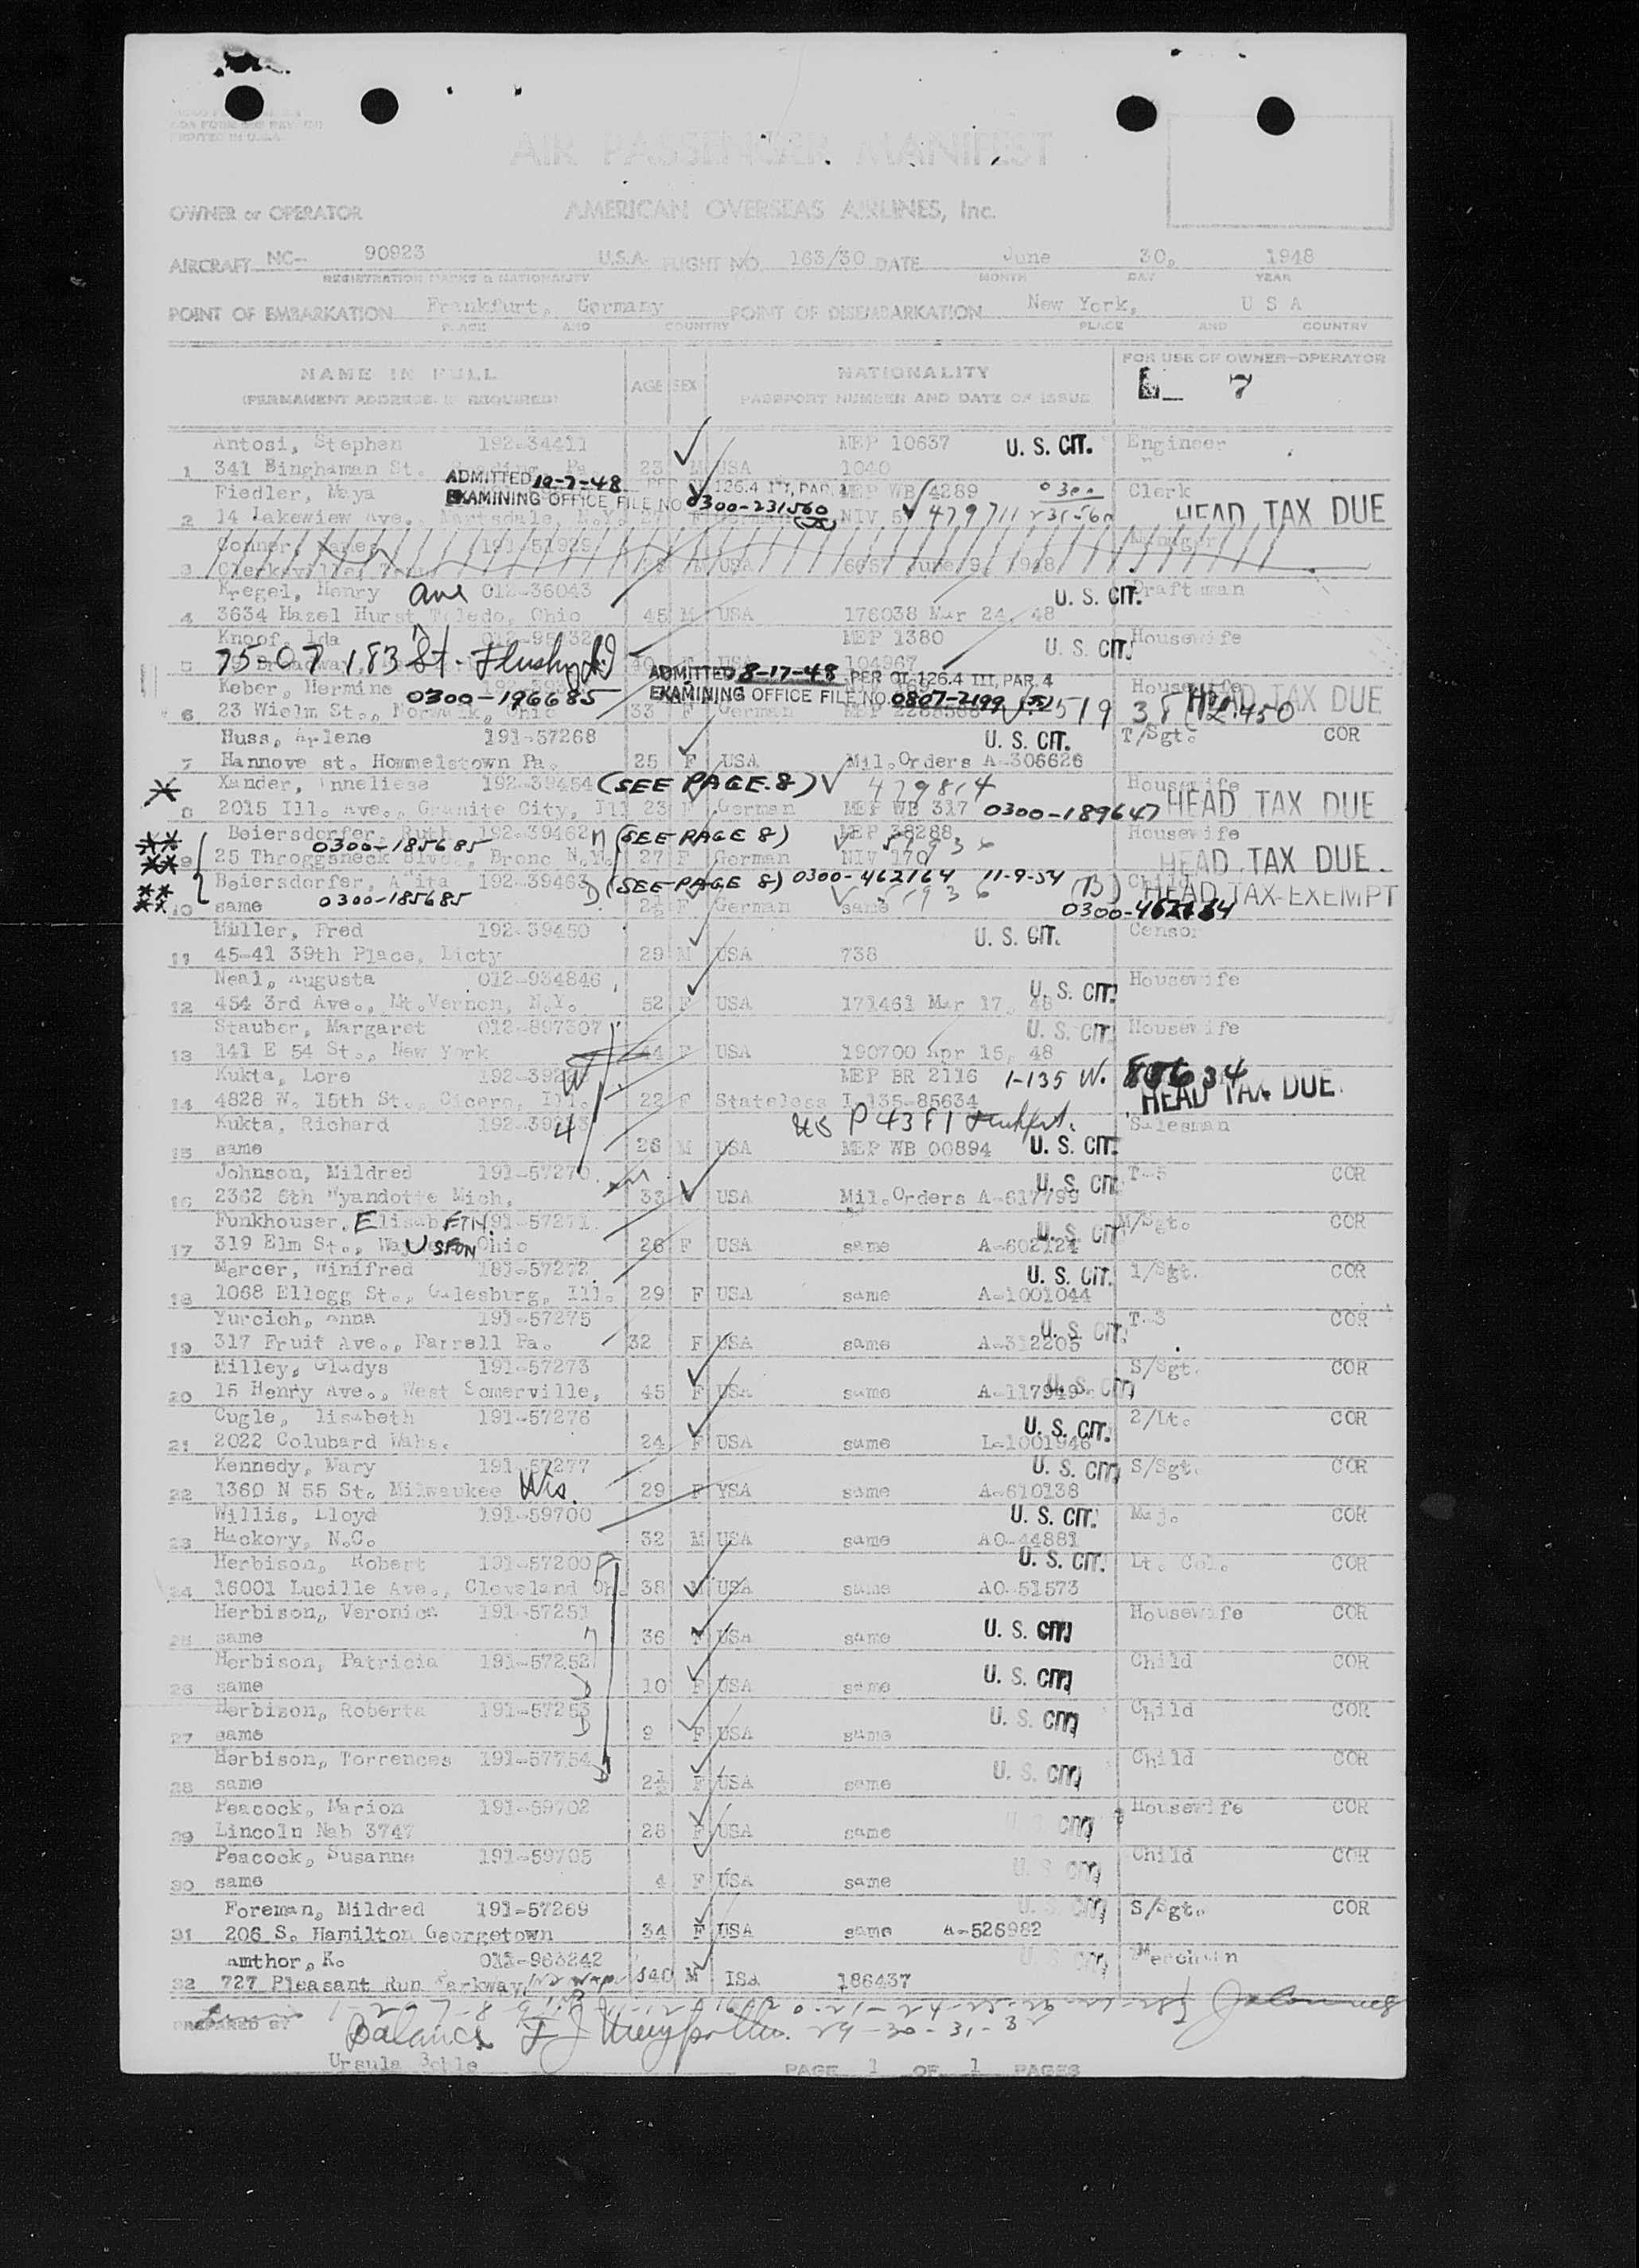 AIR PASSENGER MANIFEST
OWNER or OPERATOR AMERICAN OVERSEAS AIRLINES, Inc.
AIRCRAFT NC-- 90923 U.S.A. FLIGHT NO. 163/30 DATE June 30, 1948
REGISTRATION MARKS & NATIONALITY MONTH DAY YEAR
POINT OF EMBARKATION Frankfurt, Germany POINT OF DISEMBARKATION New York, U S A
PLACE AND COUNTRY PLACE AND COUNTRY
FOR USE OF OWNER-OPERATOR
NAME IN FULL AGE SEX NATIONALITY L_ 7
(PERMANENT ADDRESS IF REQUIRED) PASSPORT NUMBER AND DATE OF ISSUE
Antosi, Stephen 192-34411 MEP 10637 U. S. CIT. Engineer
1 341 Binghaman St. Reading, Pa. 23 M USA 1040
ADMITTED 10-7-48 PER OI 126.4 III, PAR. 4
Fiedler, Maya MEP WB 4289 0300 Clerk
EXAMINING OFFICE FILE NO. 0300-231560
2 14 Lakewiew Ave. Hartsdale, N.Y. German NIV 479711 231560 HEAD TAX DUE
Connor, James 191-51929 Manager
3 Clerksville, M USA June 9, 1948
Kregel, Henry Ave 012-36043 U. S. CIT. Draftsman
4 3634 Hazel Hurst Toledo, Ohio 45 M USA 176038 Mar 24, 48
Knoof, Ida MEP 1380 U. S. CIT. Housewife
5 75-07 183 St. Flushing 40 USA 104967
ADMITTED 8-17-48 PER OI 126.4 III, PAR. 4
Keber, Hermine 0300-196685 Housewife HEAD TAX DUE
EXAMINING OFFICE FILE NO. 0807-2199
6 23 Wielm St., Norwalk, Ohio 33 F German
Huss, Arlene 191-57268 U. S. CIT. T/Sgt. COR
7 Hannove st. Hommelstown Pa. 25 F USA Mil.Orders A-306626
* Xander, Anneliese 192-39454 (SEE PAGE 8) 479814 Housewife
8 2015 Ill. Ave., Granite City, Ill 23 F German MEP WB 317 0300-189647 HEAD TAX DUE
** Beiersdorfer, Ruth 192-39462 (SEE PAGE 8) MEP 38288 Housewife
0300-185685
** 9 25 Throggsneck Blvd., Bronc N.Y. 27 F German NIV 170 HEAD TAX DUE
** Beiersdorfer, Anita 192-39463 D (SEE PAGE 8) 0300-462164 11-9-54 (B) Child
** 10 same 0300-185685 2½ F German same HEAD TAX EXEMPT
Müller, Fred 192-39450 U. S. CIT. Censor
11 45-41 39th Place, Licty 29 M USA 738
Neal, Augusta 012-934846 U. S. CIT. Housewife
12 454 3rd Ave., Mt.Vernon, N.Y. 52 F USA 171461 Mar 17, 48
Stauber, Margaret 012-897307 U. S. CIT. Housewife
13 141 E 54 St., New York 44 F USA 190700 Apr 15, 48
Kukta, Lore MEP BR 2116 1-135 W.
14 4828 W. 15th St., Cicero, Ill. 22 F Stateless I 135-85634 HEAD TAX DUE
Kukta, Richard P 43 F1 Salesman
15 same 26 M USA MEP WB 00894 U. S. CIT.
Johnson, Mildred 191-57270 U. S. CIT. T-5 COR
16 2362 6th Wyandotte Mich, 33 USA Mil.Orders A-617799
Funkhouser, ElisabETH 191-57271 U. S. CIT. M/Sgt. COR
17 319 Elm St., Ohio 26 F USA same A-602124
Mercer, Winifred 181-57272 U. S. CIT. 1/Sgt. COR
18 1068 Ellogg St., Galesburg, Ill. 29 F USA same A-1001044
Yurcich, Anna 191-57275 U. S. CIT. T-3 COR
19 317 Fruit Ave., Farrell Pa. 32 F USA same A-312205
Milley, Gladys 191-57273 S/Sgt. COR
20 15 Henry Ave., West Somerville, 45 F USA same A-117949 U. S. CIT.
Cugle, lisabeth 191-57276 U. S. CIT. 2/Lt. COR
21 2022 Colubard Wahs. 24 F USA same L-1001946
Kennedy, Mary 191-57277 U. S. CIT. S/Sgt. COR
22 1360 N 55 St. Milwaukee Wis. 29 F YSA same A-610138
Willis, Lloyd 191-59700 U. S. CIT. Maj. COR
23 Hackory, N.C. 32 M USA same AO-44881
Herbison, Robert 191-57200 U. S. CIT. Lt. Col. COR
24 16001 Lucille Ave., Cleveland Oh. 38 M USA same AO-51573
Herbison, Veronica 191-57251 Housewife COR
25 same 36 F USA same U. S. CIT.
Herbison, Patricia 191-57252 Child COR
26 same 10 F USA same U. S. CIT.
Herbison, Roberta 191-57253 Child COR
27 same 9 F USA same U. S. CIT.
Herbison, Torrences 191-57754 Child COR
28 same 2½ F USA same U. S. CIT.
Peacock, Marion 191-59702 Housewife COR
29 Lincoln Neb 3747 28 F USA same U. S. CIT.
Peacock, Susanne 191-59705 Child COR
30 same 4 F USA same U. S. CIT.
Foreman, Mildred 191-57269 U. S. CIT. S/Sgt. COR
31 206 S. Hamilton Georgetown 34 F USA same A-526982
Amthor, K. 012-963242 U. S. CIT.
32 727 Pleasant Run Parkway, 40 M ISA 186437
PREPARED BY Balance 29-30-31-32
Ursula
PAGE 1 OF 1 PAGES